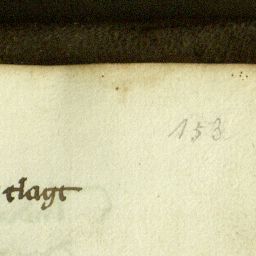 153
tlagt